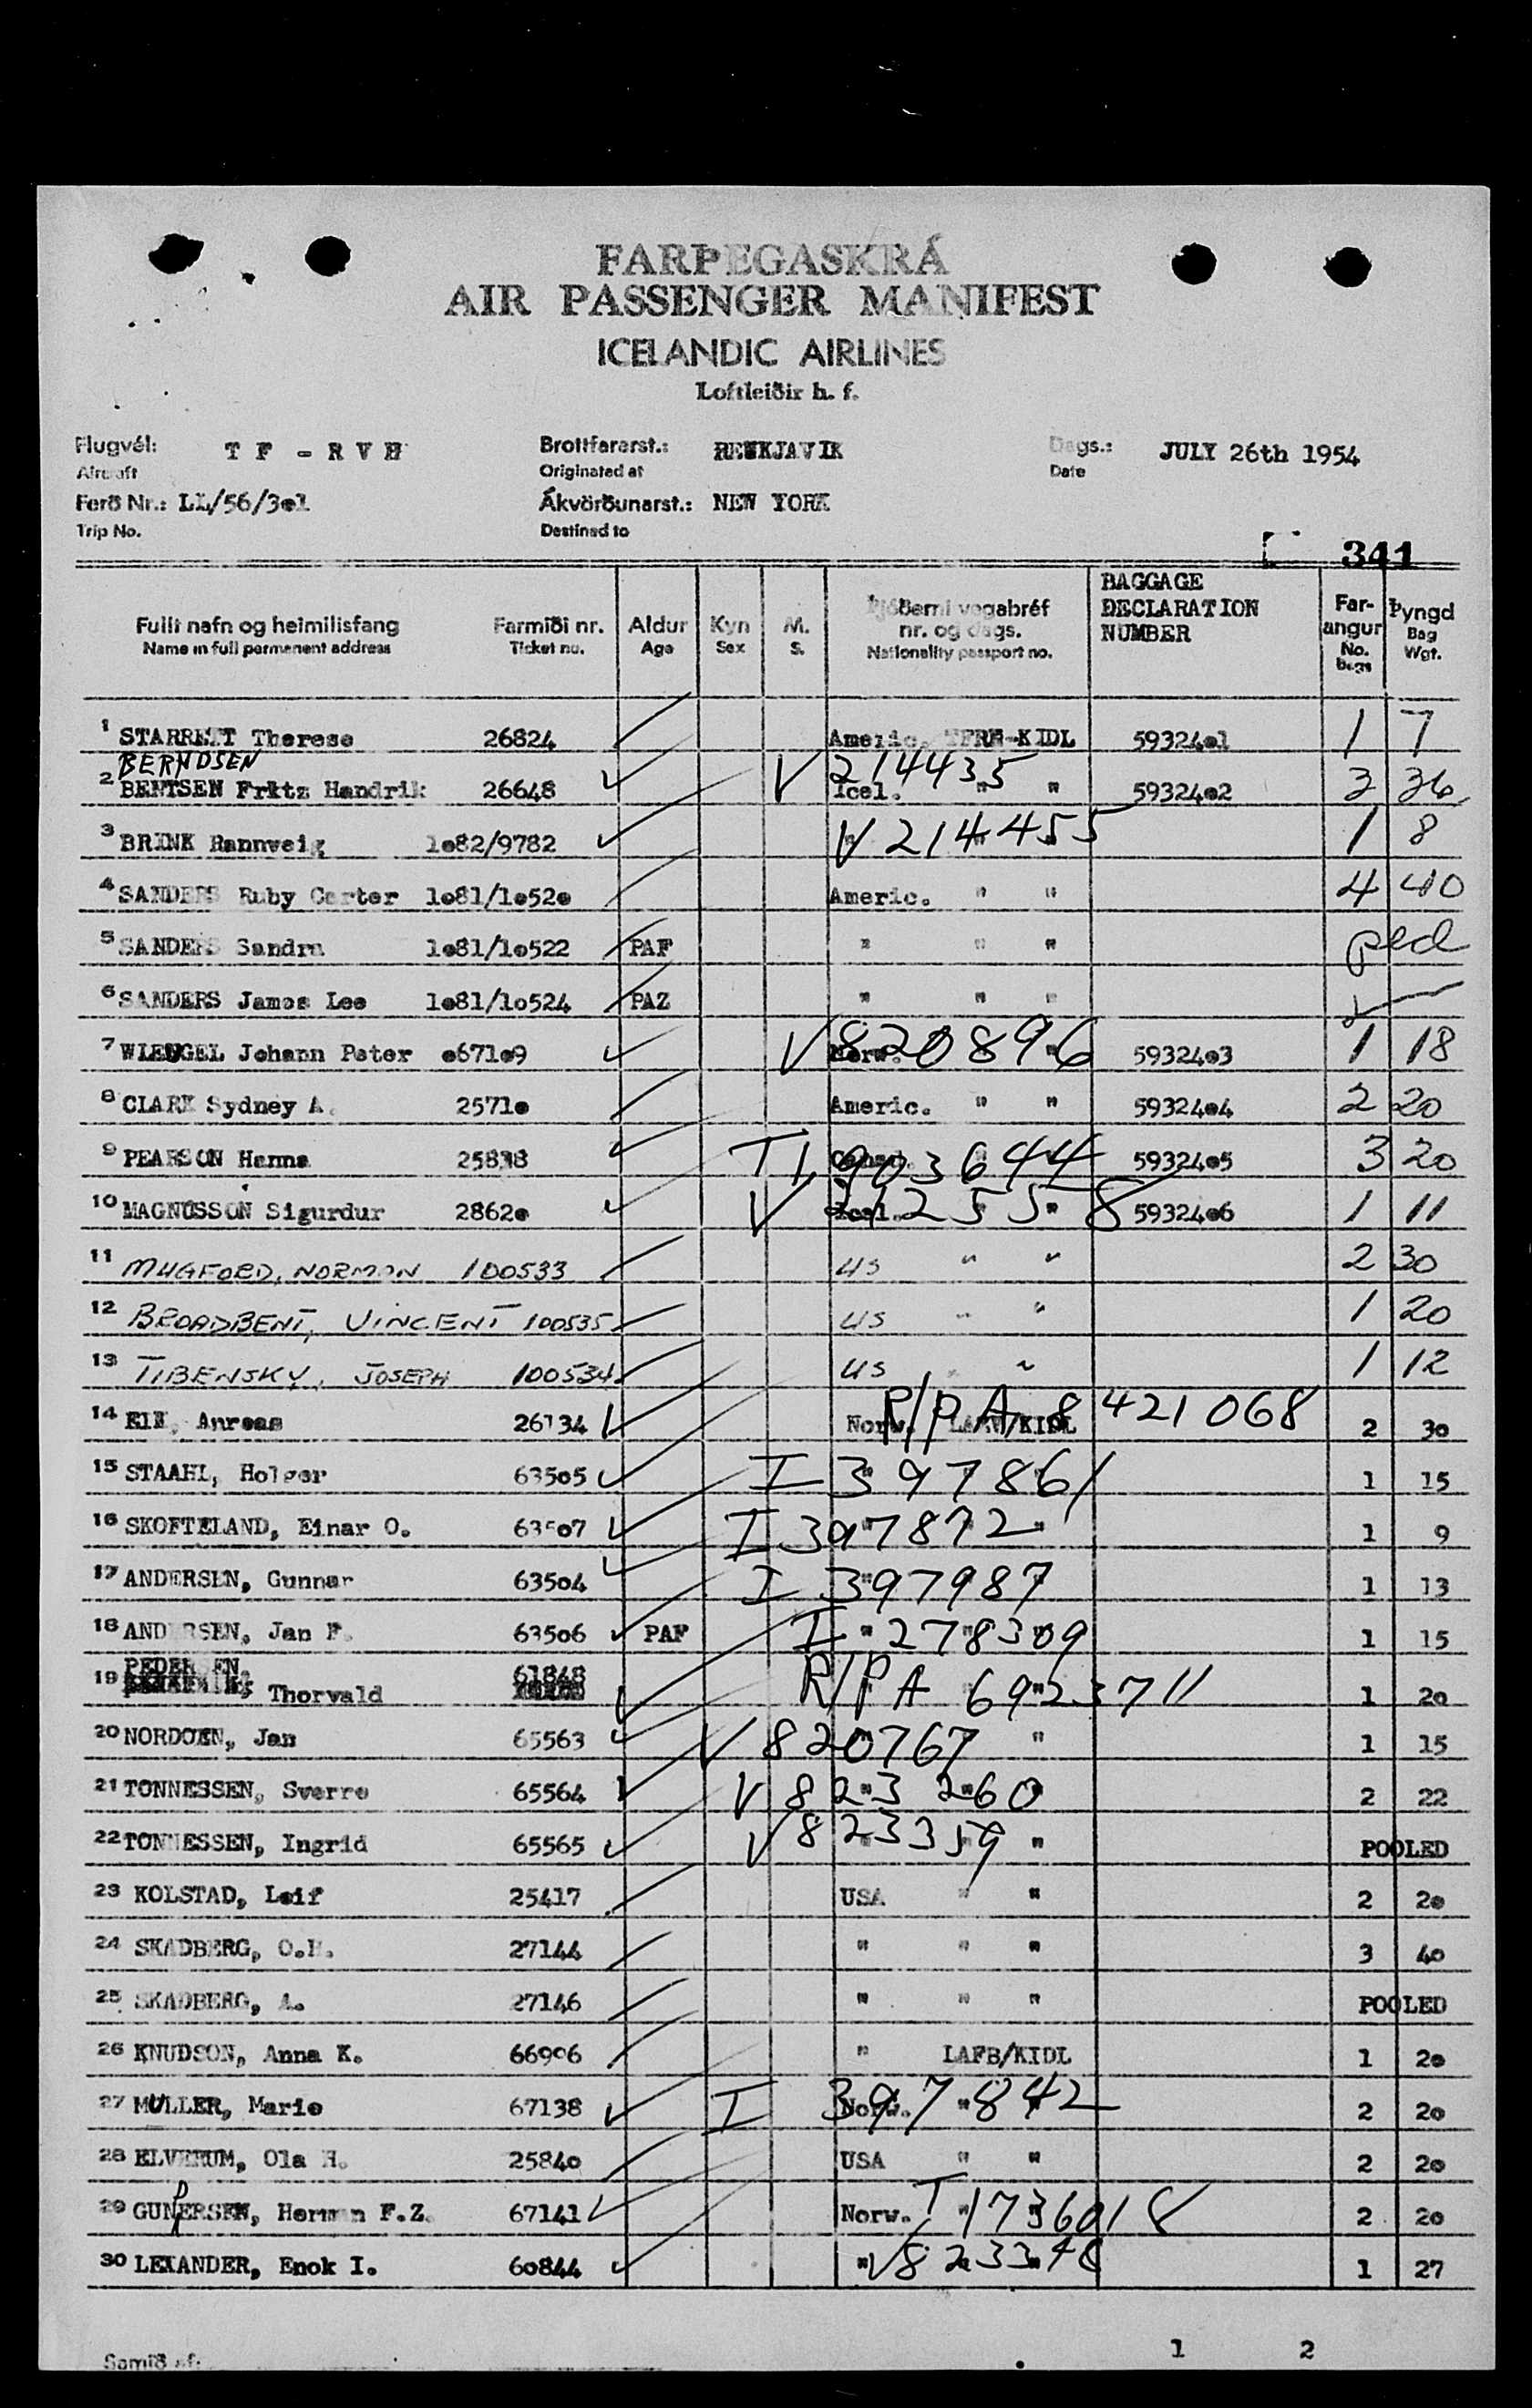 FARÞEGASKRÁ
AIR PASSENGER MANIFEST
ICELANDIC AIRLINES
Loftleiðir h. f.
Flugvél: TF-RVH Brottfararst.: REYKJAVIK Dags.: JULY 26th 1954
Aircraft Originated at Date
Ferð Nr.: LL/56/3o1 Ákvörðunarst.: NEW YORK
Trip No. Destined to
341
Fullt nafn og heimilisfang Farmiði nr. Aldur Kyn M. Þjóðerni vegabréf BAGGAGE DECLARATION NUMBER Far-angur Þyngd
Name in full permanent address Ticket no. Age Sex S. nr. og dags. No. Bags Bag Wgt.
Nationality passport no.
1 STARRETT Therese 26824 Americ. TFRH-KIDL 59324o1 1 7
BERNDSEN V 214435
2 BENTSEN Fritz Handrik 26648 Icel. " " 59324o2 3 36
3 BRINK Rannveig 1o82/9782 V 214455 1 8
4 SANDERS Ruby Carter 1o81/1o52o Americ. " " 4 40
5 SANDERS Sandra 1o81/1o522 PAF " " " pld
6 SANDERS James Lee 1o81/1o524 PAZ " " "
7 WIENGEL Johann Peter o671o9 V 820896 Norw. " 59324o3 1 18
8 CLARK Sydney A. 2571o Americ. " " 59324o4 2 20
9 PEARSON Hanna 25838 T1,903644 59324o5 3 20
10 MAGNUSSON Sigurdur 2862o V 212558 Icel. " 59324o6 1 11
11 MUGFORD, NORMAN 100533 US " " 2 30
12 BROADBENT, VINCENT 100535 US " " 1 20
13 TIBENSKY, JOSEPH 100534 US " " 1 12
14 EIK, Anreas 26134 Norw. R/P A 8421068 2 3o
15 STAAHL, Holger 635o5 I 397861 1 15
16 SKOFTELAND, Einar O. 635o7 I 397872 1 9
17 ANDERSEN, Gunnar 635o4 I 397987 1 13
18 ANDERSEN, Jan F. 635o6 PAF I 278309 1 15
PEDERSEN, 61848
19 Thorvald R/P A 6923711 1 2o
20 NORDOEN, Jan 65563 V 820767 " 1 15
21 TONNESSEN, Sverre 65564 V 823260 2 22
22 TONNESSEN, Ingrid 65565 V 823359 " POOLED
23 KOLSTAD, Leif 25417 USA " " 2 2o
24 SKADBERG, O.H. 27144 " " " 3 4o
25 SKADBERG, A. 27146 " " " POOLED
26 KNUDSON, Anna K. 669o6 " LAFB/KIDL 1 2o
27 MULLER, Marie 67138 I 397842 Norw. " 2 2o
28 ELVERUM, Ola H. 2584o USA " " 2 2o
29 GUNERSEN, Herman F.Z. 67141 Norw. T 1736018 2 2o
30 LEXANDER, Enok I. 6o844 " V 823348 1 27
Samið af: 1 2